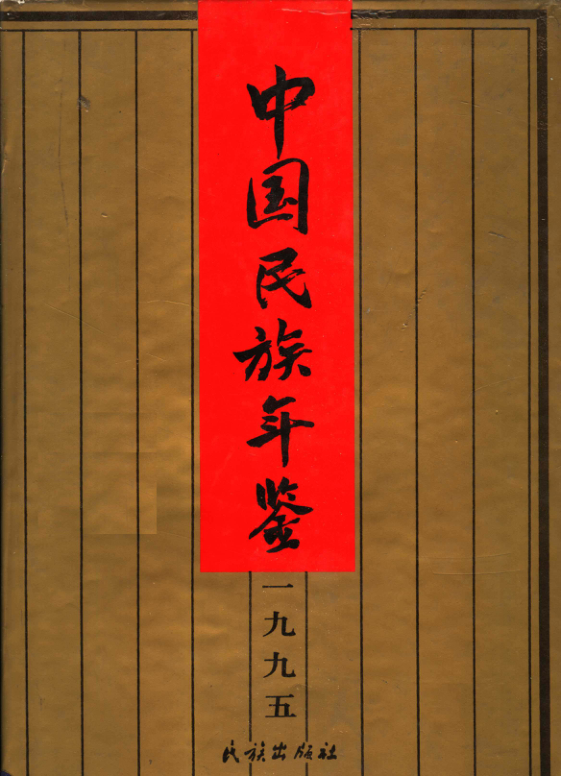 中国民族年鉴
一九九五
民族出版社